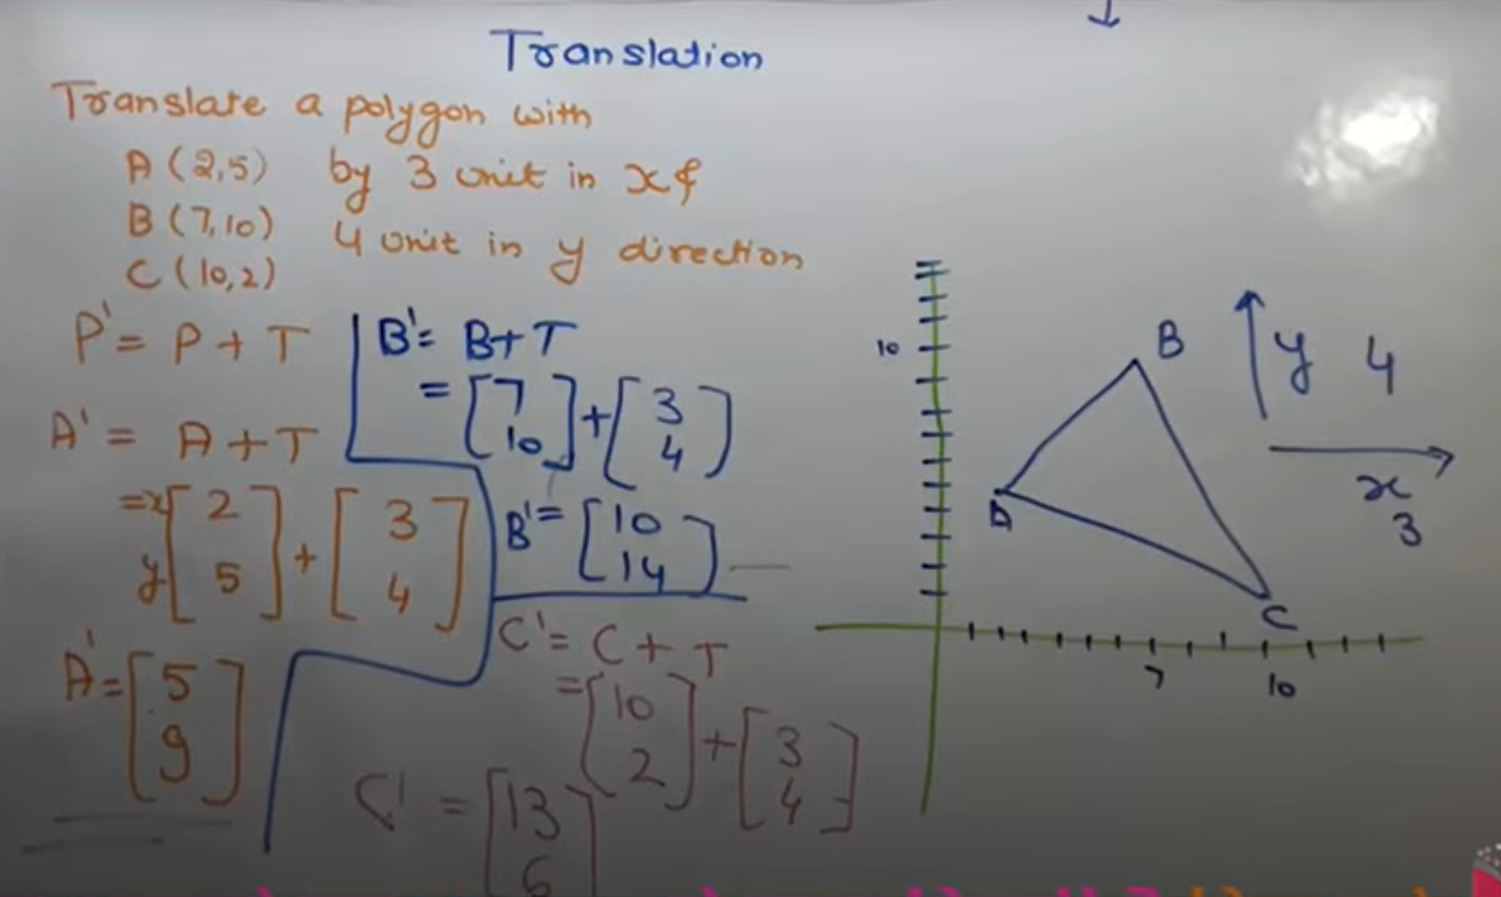 Translation
Translate a polygon with
A (2,5) by 3 unit in x &
B (7,10) 4 unit in y direction
C (10,2)
P' = P + T
A' = A + T
= x [2] + [3]
y [5] [4]
A' = [5]
[9]
B' = B + T
= [7] + [3]
[10] [4]
B' = [10]
[14]
C' = C + T
= [10] + [3]
[2] [4]
C' = [13]
[6]
10
B
y 4
A
x
3
C
7
10